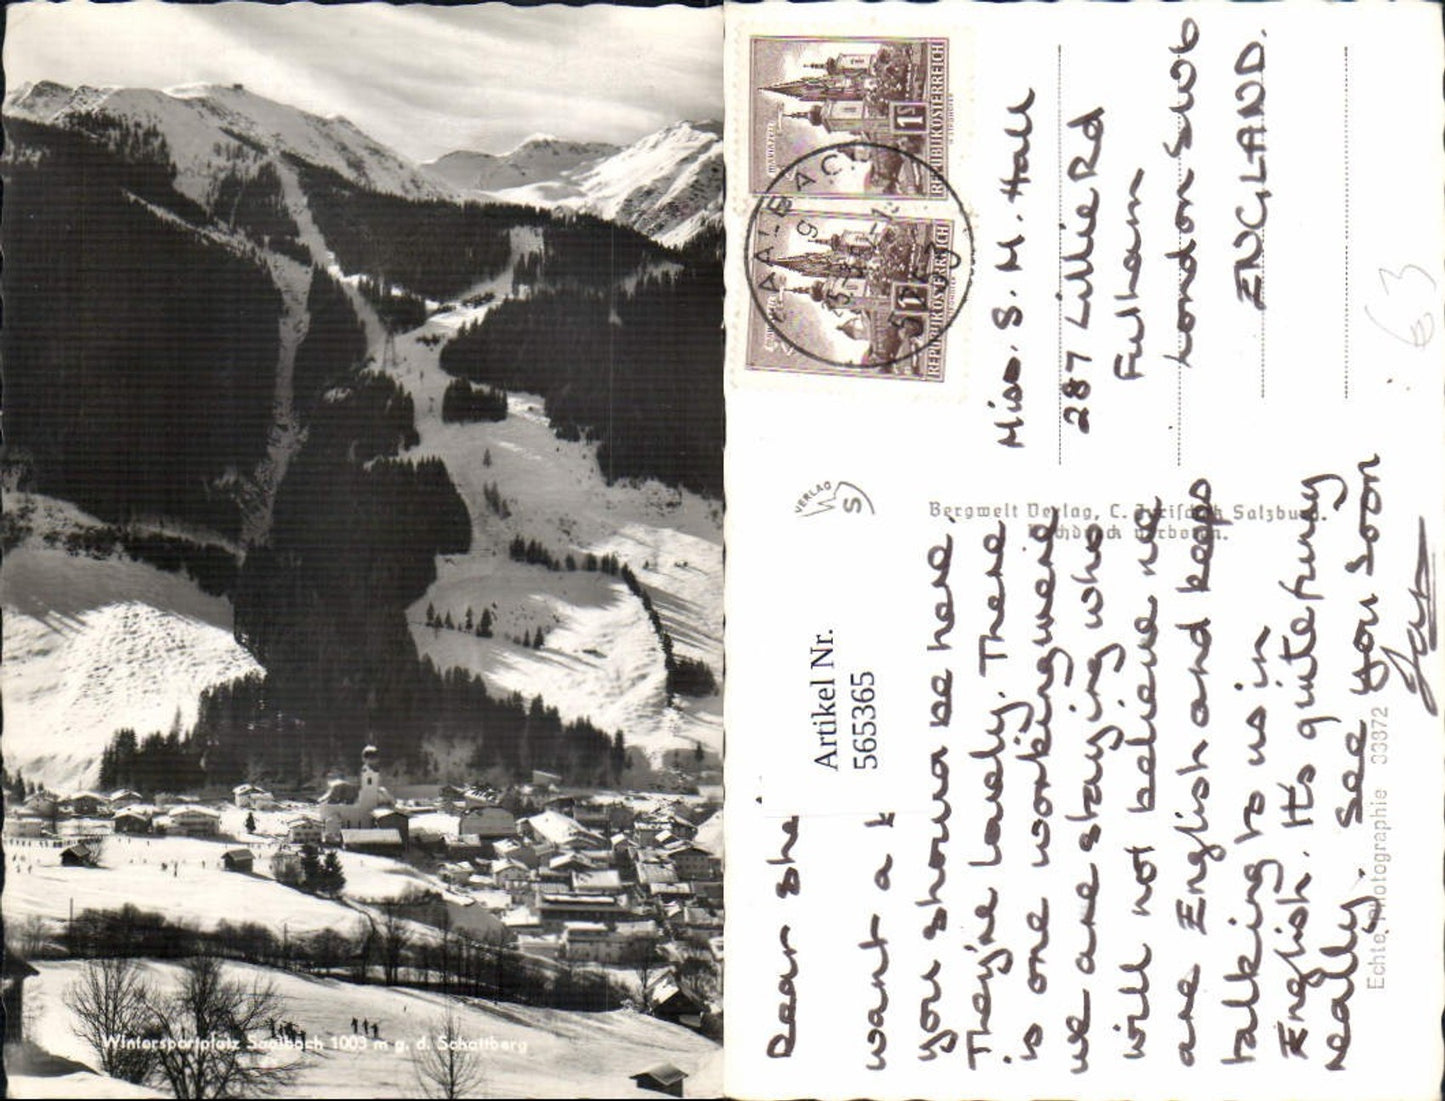 Wintersportplatz Saalbach 1003 m g. d. Schattberg
REPUBLIK ÖSTERREICH
1S
REPUBLIK ÖSTERREICH
1S
SAALBACH
Miss. S. M. Hall
287 Lillie Rd
Fulham
London SW6
ENGLAND.
63
VERLAG
WS
Bergwelt Verlag, C. Jurischek Salzburg.
Nachdruck verboten.
Artikel Nr.
565365
Dear She
want a
you should be here.
They're lovely. There
is one working where
we are staying who
will not believe we
are English and keeps
talking to us in
English. It's quite funny
really. See you soon
Echte Photographie 33872